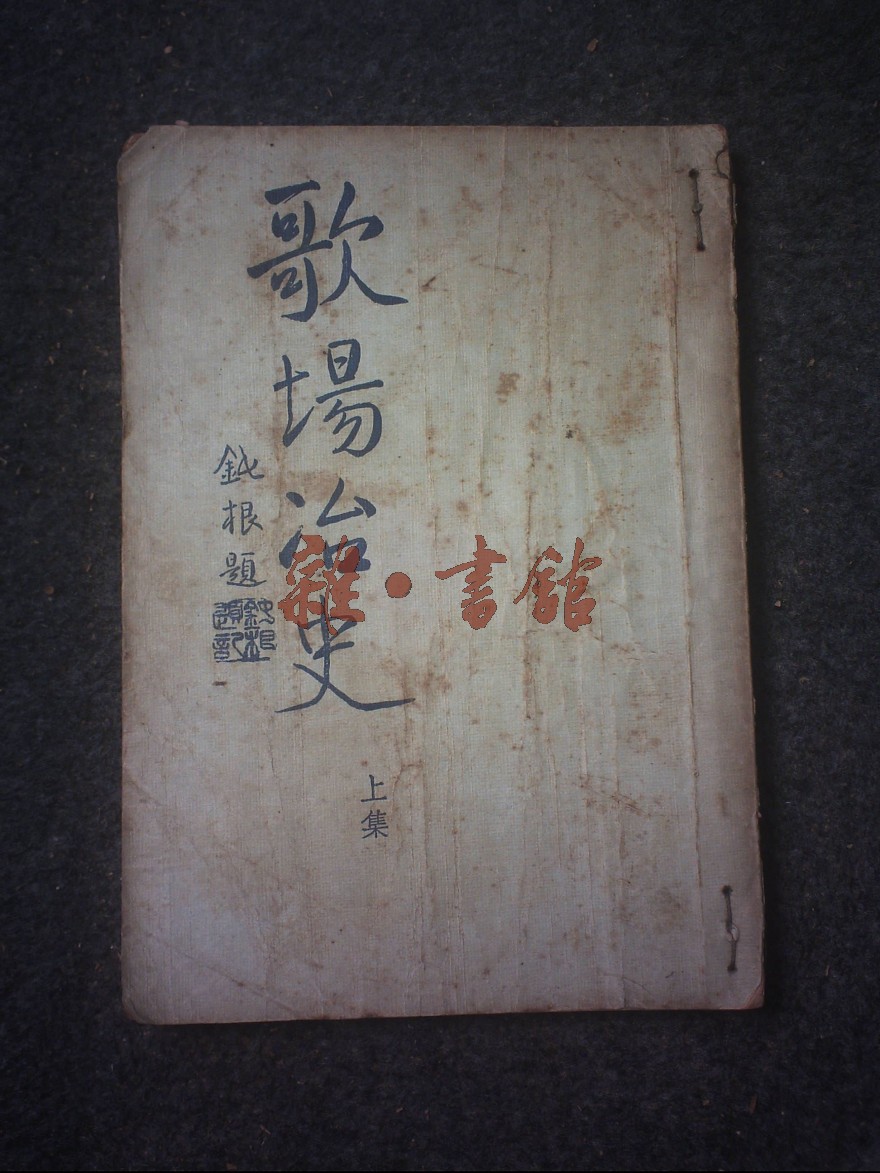 歌場冶史
鈍根題
上集
雜·書館